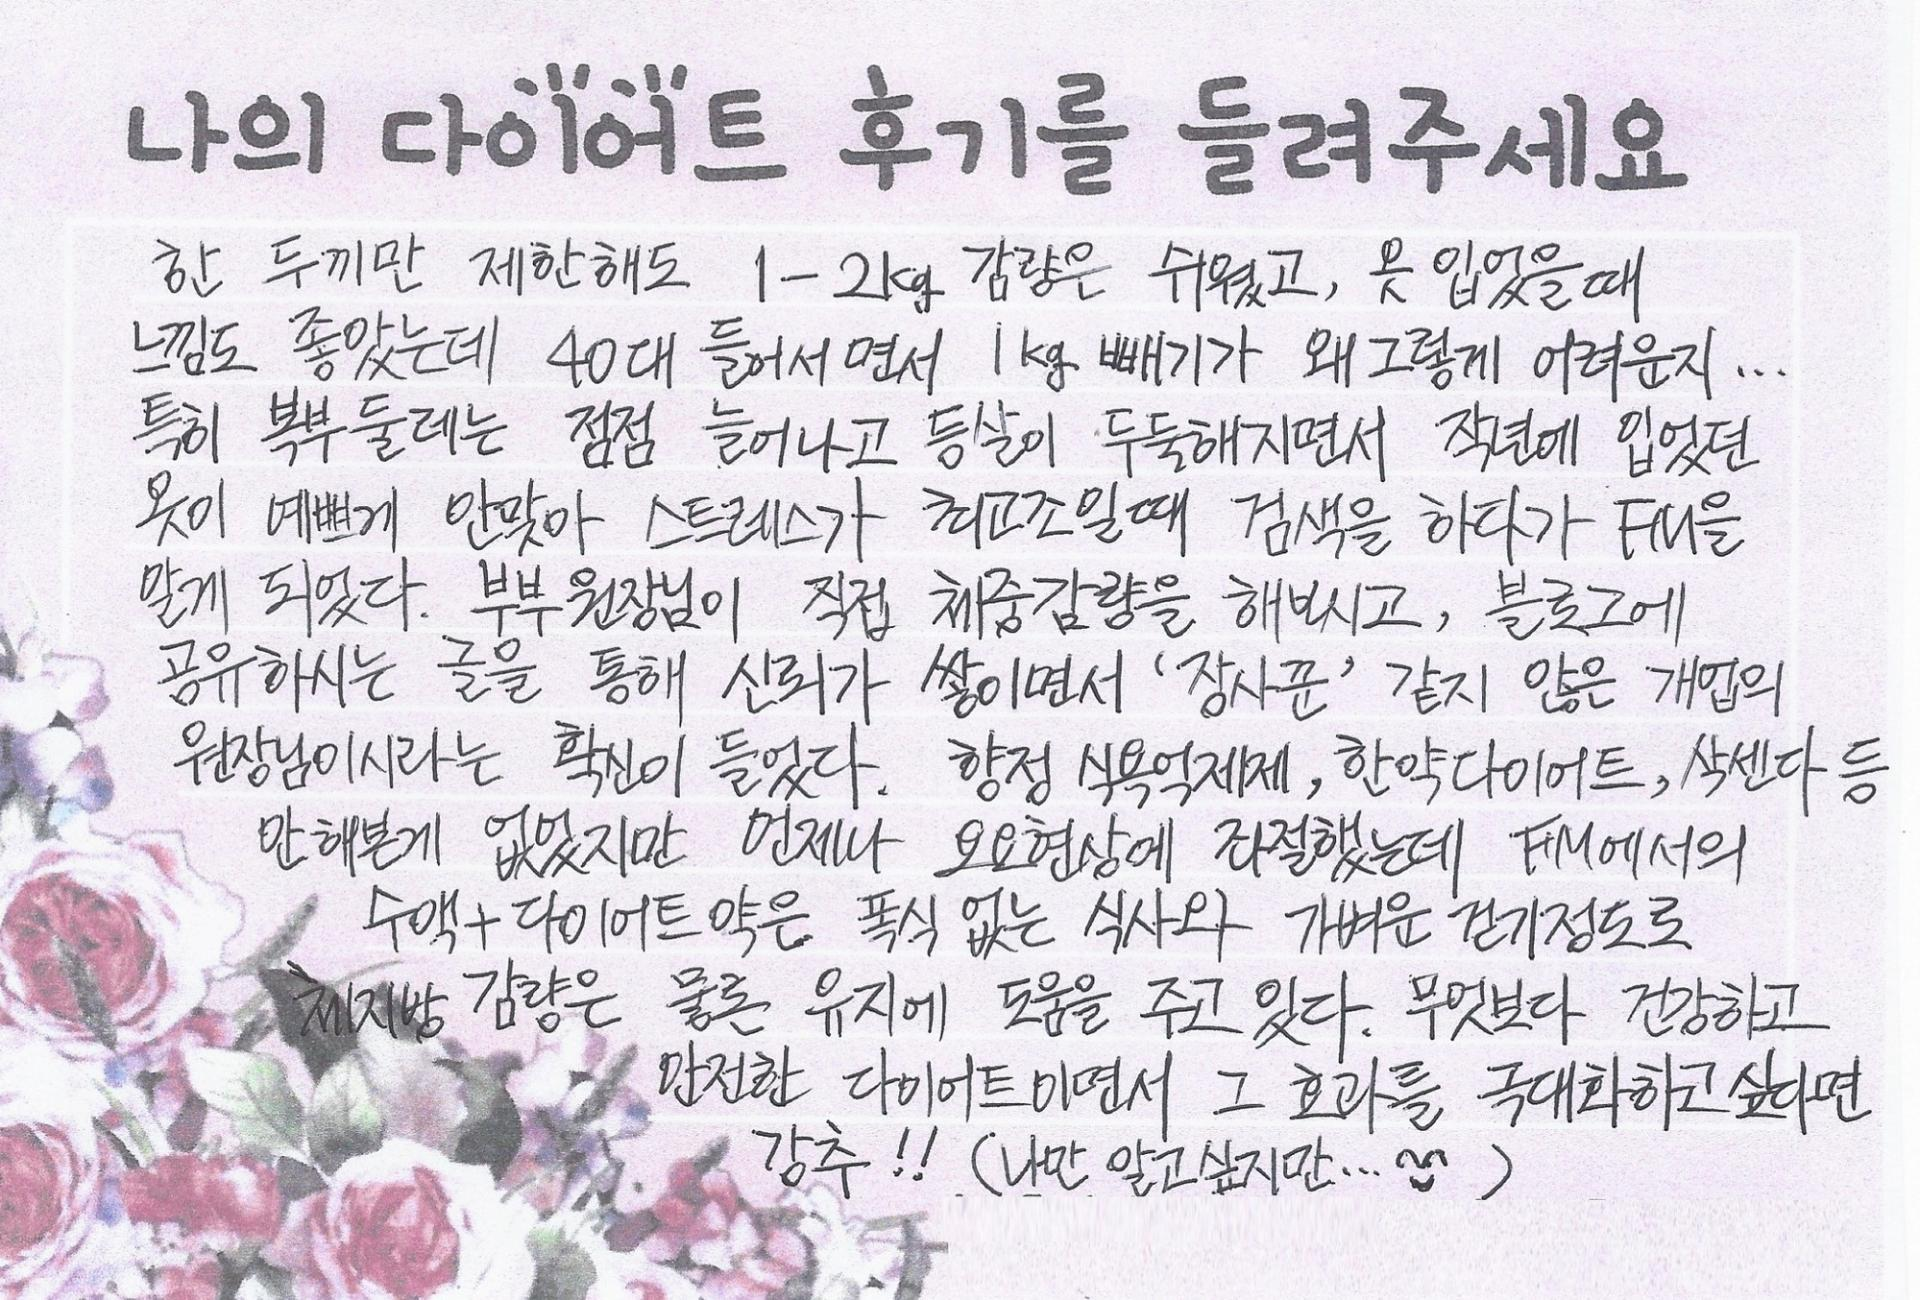 나의 다이어트 후기를 들려주세요
한 두끼만 제한해도 1-2kg 감량은 쉬웠고, 옷 입었을때
느낌도 좋았는데 40대 들어서면서 1kg 빼기가 왜그렇게 어려운지...
특히 복부둘레는 점점 늘어나고 등살이 두둑해지면서 작년에 입었던
옷이 예쁘게 안맞아 스트레스가 최고조일때 검색을 하다가 FM을
알게 되었다. 부부원장님이 직접 체중감량을 해보시고, 블로그에
공유하시는 글을 통해 신뢰가 쌓이면서 '장사꾼' 같지 않은 개업의
원장님이시라는 확신이 들었다. 향정 식욕억제제, 한약다이어트, 삭센다 등
안해본게 없었지만 언제나 요요현상에 좌절했는데 FM에서의
수액+다이어트약은 폭식 없는 식사와 가벼운 걷기정도로
체지방 감량은 물론 유지에 도움을 주고 있다. 무엇보다 건강하고
안전한 다이어트이면서 그 효과를 극대화하고싶다면
강추!! (나만 알고싶지만... )